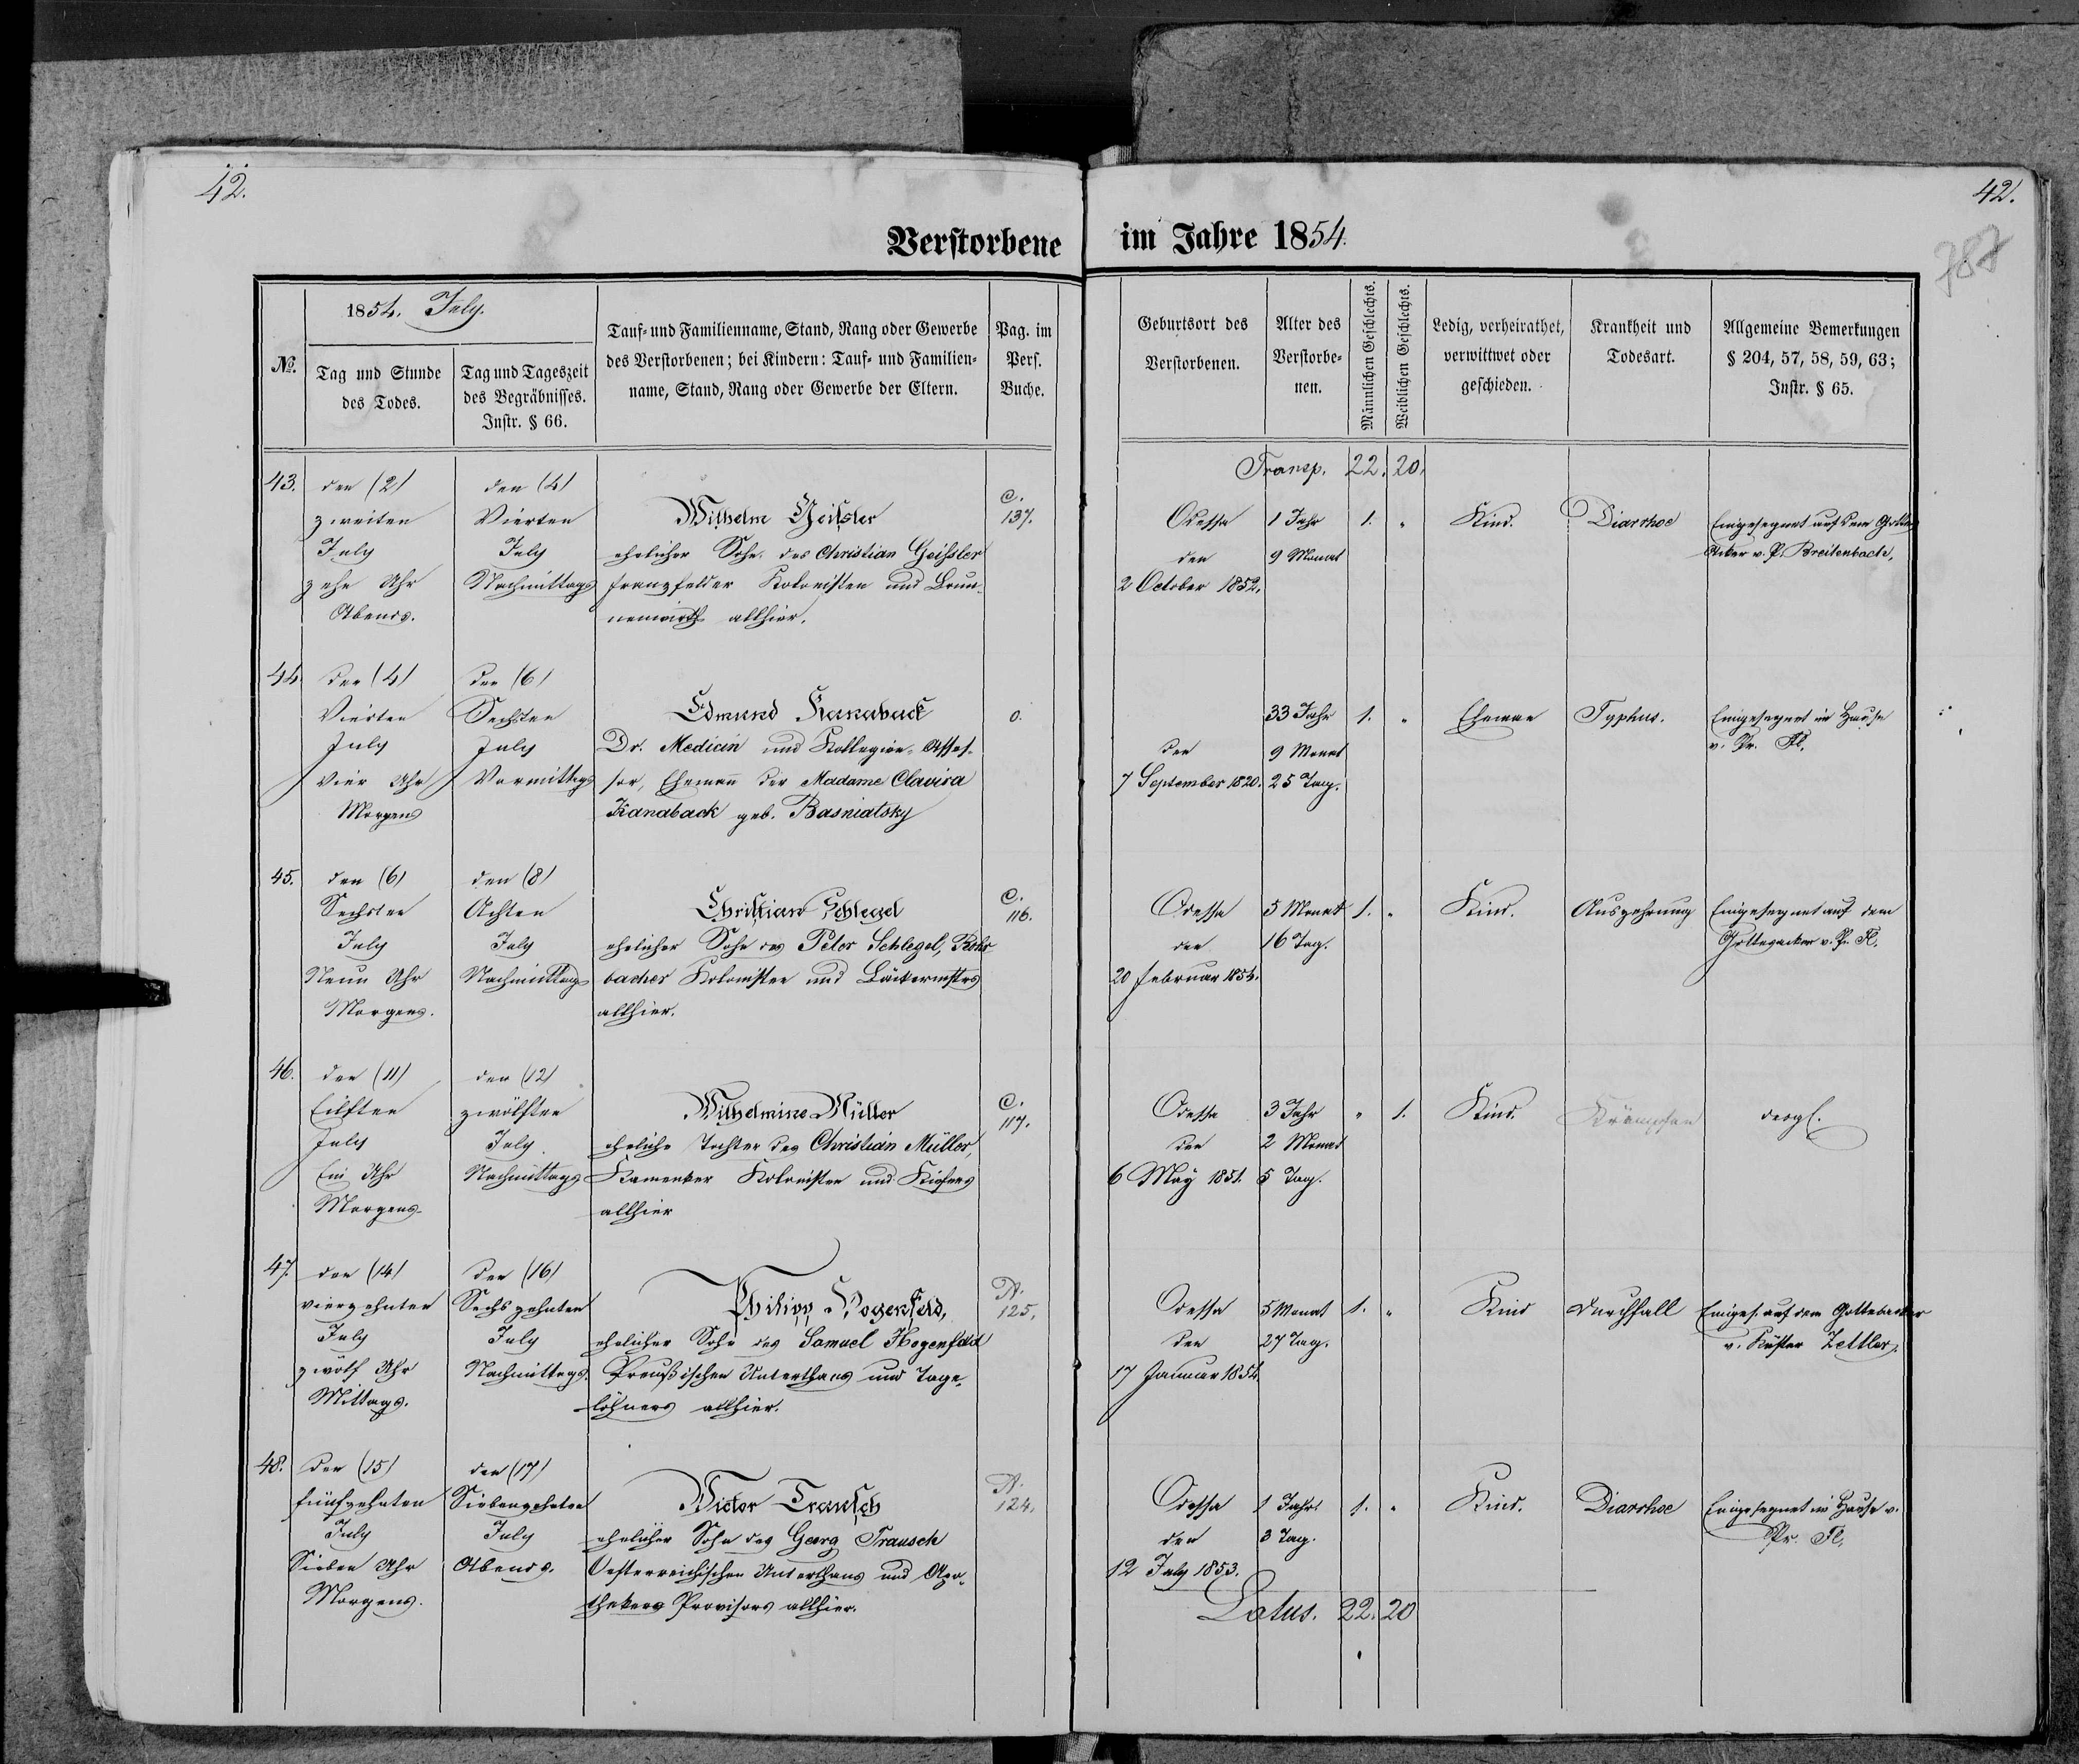 42.
42.
787
Verstorbene im Jahre 1854.
No.
1854. July.
Tag und Stunde des Todes.
Tag und Tageszeit des Begräbnisses. Instr. § 66.
Tauf- und Familienname, Stand, Rang oder Gewerbe
des Verstorbenen; bei Kindern: Tauf- und Familien-
name, Stand, Rang oder Gewerbe der Eltern.
Pag. im Pers. Buche.
Geburtsort des Verstorbenen.
Alter des Verstorbe-nen.
Männlichen Geschlechts.
Weiblichen Geschlechts.
Ledig, verheirathet, verwittwet oder geschieden.
Krankheit und Todesart.
Allgemeine Bemerkungen § 204, 57, 58, 59, 63; Instr. § 65.
Transp. 22. 20.
43.
den (2)
zweiten
July
zehn Uhr
Abends.
den (4)
Vierten
July
Nachmittags
Wilhelm Geissler
ehelicher Sohn des Christian Geissler
Franzfelder Kolonisten und Brun-
nenwirth allhier.
C.
137.
Odessa
den
2 October 1852.
1 Jahr
9 Monat
1. "
Kind.
Diarrhoe
Eingesegnet auf dem Gottes
Acker v. P. Breitenbach,
44.
den (4)
Vierten
July
Vier Uhr
Morgens
den (6)
Sechsten
July
Vormittags
Edmund Kanaback
Dr. Medicin und Kollegien-Asses-
sor, Ehemann der Madame Clavira
Kanaback geb. Basniatsky
0.
den
7 September 1820.
33 Jahr
9 Monat
25 Tag.
1. "
Eheman
Typhus.
Eingesegnet im Hause
v. Pr. Fl.
45.
den (6)
Sechsten
July
Neun Uhr
Morgens.
den (8)
Achten
July
Nachmittags
Christian Schlegel
ehelicher Sohn des Peter Schlegel, Rohr
bacher Kolonisten und Bäckermstrs
allhier.
C.
116.
Odessa
den
20 Februar 1854.
5 Monat
16 Tag.
1. "
Kind.
Auszehrung
Eingesegnet auf dem
Gottesacker v. Pr. Fl.
46.
den (11)
Eilften
July
Ein Uhr
Morgens.
den (12)
zwölften
July
Nachmittags
Wilhelmine Müller
eheliche Tochter des Christian Müller,
Kamenker Kolonisten und Küfers
allhier
C.
117.
Odessa
den
6 May 1851.
3 Jahr
2 Monat
5 Tag.
" 1.
Kind.
Krämpfen
desgl.
47.
den (14)
vierzehnten
July
zwölf Uhr
Mittags.
den (16)
Sechszehnten
July
Nachmittags.
Philipp Hogenfeld,
ehelicher Sohn des Samuel Hogenfeld
Preußischen Unterthans und Tage-
löhners allhier.
A.
125.
Odessa
den
17 Januar 1854.
5 Monat
27 Tag.
1. "
Kind
Durchfall
Einges. auf dem Gottesacker
v. Küster Zettler.
48.
den (15)
fünfzehnten
July
Sieben Uhr
Morgens.
den (17)
Siebenzehnten
July
Abends.
Victor Trausch
ehelicher Sohn des Georg Trausch
Oesterreichischen Unterthans und Apo-
thekers Provisors allhier.
A.
124.
Odessa
den
12 July 1853.
1 Jahr
3 Tag.
1. "
Kind.
Diarrhoe
Eingesegnet im Hause v.
Pr. Fl.
Latus. 22. 20